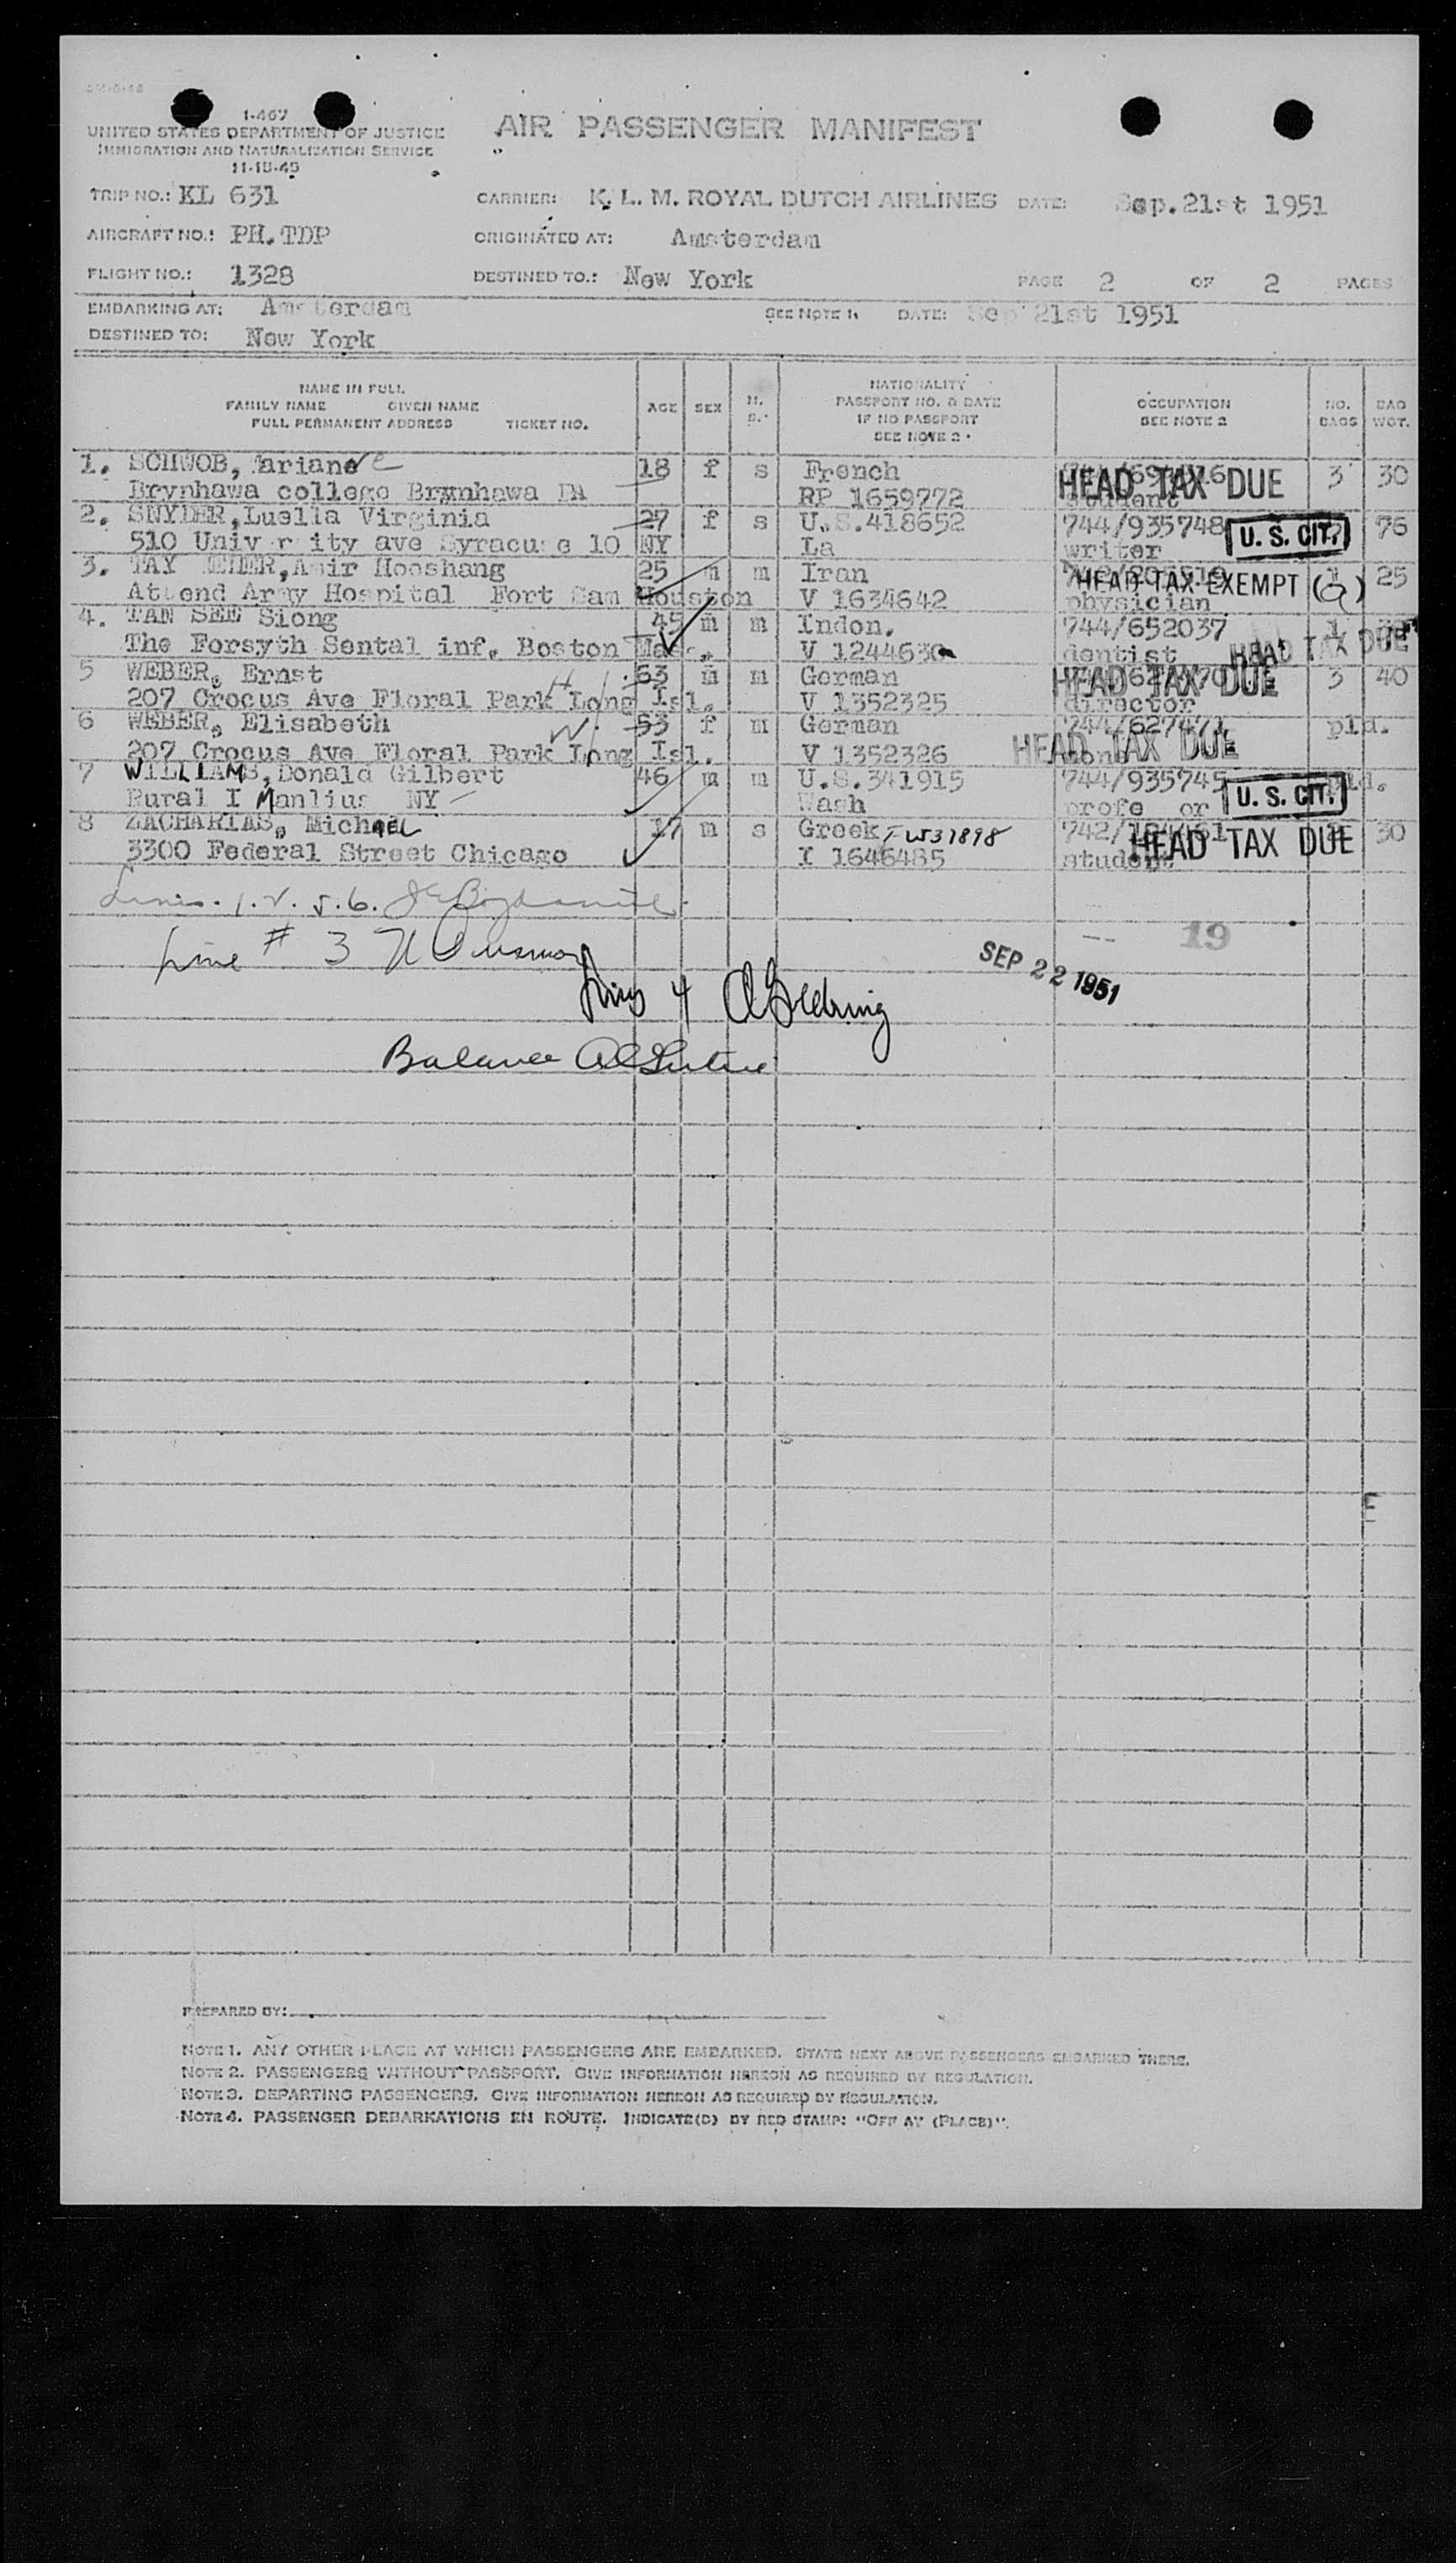 1-467
UNITED STATES DEPARTMENT OF JUSTICE
IMMIGRATION AND NATURALIZATION SERVICE
11-18-45
AIR PASSENGER MANIFEST
TRIP NO.: KL 631 CARRIER: K. L. M. ROYAL DUTCH AIRLINES DATE: Sep.21st 1951
AIRCRAFT NO.: PH.TDP ORIGINATED AT: Amsterdam
FLIGHT NO.: 1328 DESTINED TO.: New York PAGE 2 OF 2 PAGES
EMBARKING AT: Amsterdam SEE NOTE 1. DATE: Sep 21st 1951
DESTINED TO: New York
NAME IN FULL
FAMILY NAME GIVEN NAME
FULL PERMANENT ADDRESS TICKET NO.
AGE SEX M. S.
NATIONALITY
PASSPORT NO. & DATE
IF NO PASSPORT
SEE NOTE 2
OCCUPATION
SEE NOTE 2
NO. BAGS
BAG WGT.
1. SCHWOB, Mariane 18 f s French HEAD TAX DUE 3 30
Brynhawa college Brynhawa PA RP 1659772 student
2. SNYDER, Luella Virginia 27 f s U.S.418652 744/935748 U. S. CIT. 76
510 University ave Syracuse 10 NY La writer
3. TAY , Amir Hooshang 25 m m Iran HEAD TAX EXEMPT (G) 25
Attend Army Hospital Fort Sam Houston V 1634642 physician
4. TAN SEE Siong 45 m m Indon. 744/652037 1
The Forsyth Sental inf. Boston Mass. V 1244630 dentist HEAD TAX DUE
5 WEBER, Ernst 63 m m German HEAD TAX DUE 3 40
207 Crocus Ave Floral Park Long Isl. V 1352325 director
6 WEBER, Elisabeth 53 f m German 744/627471 pld.
207 Crocus Ave Floral Park Long Isl. V 1352326 HEAD TAX DUE
7 WILLIAMS, Donald Gilbert 46 m m U.S.341915 744/935745 pld.
Rural I Manlius NY Wash U. S. CIT.
8 ZACHARIAS, Michael 17 m s Greek F W31898 30
3300 Federal Street Chicago I 1646485 student HEAD TAX DUE
Lines. 1. 2. 5. 6.
19
Line # 3
SEP 22 1951
Line 4
Balance
PREPARED BY:
NOTE 1. ANY OTHER PLACE AT WHICH PASSENGERS ARE EMBARKED. STATE NEXT ABOVE PASSENGERS EMBARKED THERE.
NOTE 2. PASSENGERS WITHOUT PASSPORT. GIVE INFORMATION HEREON AS REQUIRED BY REGULATION.
NOTE 3. DEPARTING PASSENGERS. GIVE INFORMATION HEREON AS REQUIRED BY REGULATION.
NOTE 4. PASSENGER DEBARKATIONS EN ROUTE. INDICATE(D) BY RED STAMP: "OFF AT (PLACE)".